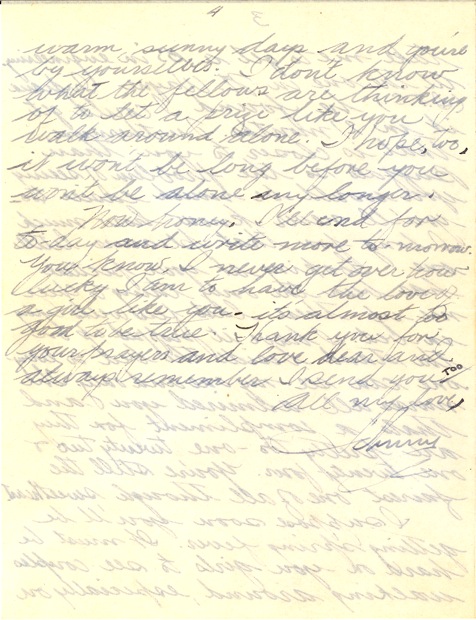 4
warm sunny days and you're
by yourselves. I don't know
what the fellows are thinking
of to let a prize like you
walk around alone. I hope, too,
it won't be long before you
won't be alone any longer.
Now honey, I'll end for
to-day and write more to-morrow.
You know, I never get over how
lucky I am to have the love of
a girl like you - it's almost too
good to be true. Thank you for
your prayers and love dear and
always remember I send you
too
all my love,